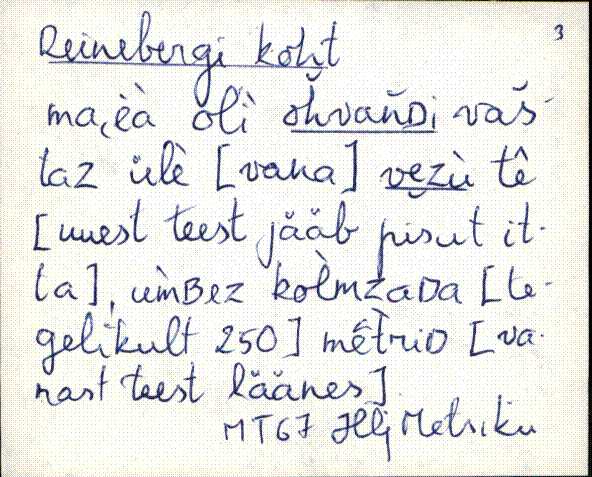 3
Reinebergi koht
ma,èà olì ŏh̆vaňDi vaš-
taz ülè [vana] vezù tê
[uuest teest jääb pisut it-
ta], ùmBez kolmzaDa [te-
gelikult 250] mêtriD [va-
nast teest läänes].
MT67 Metsiku